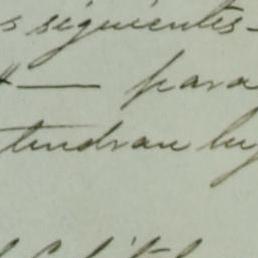 s siguientes-
— para
tendran lu